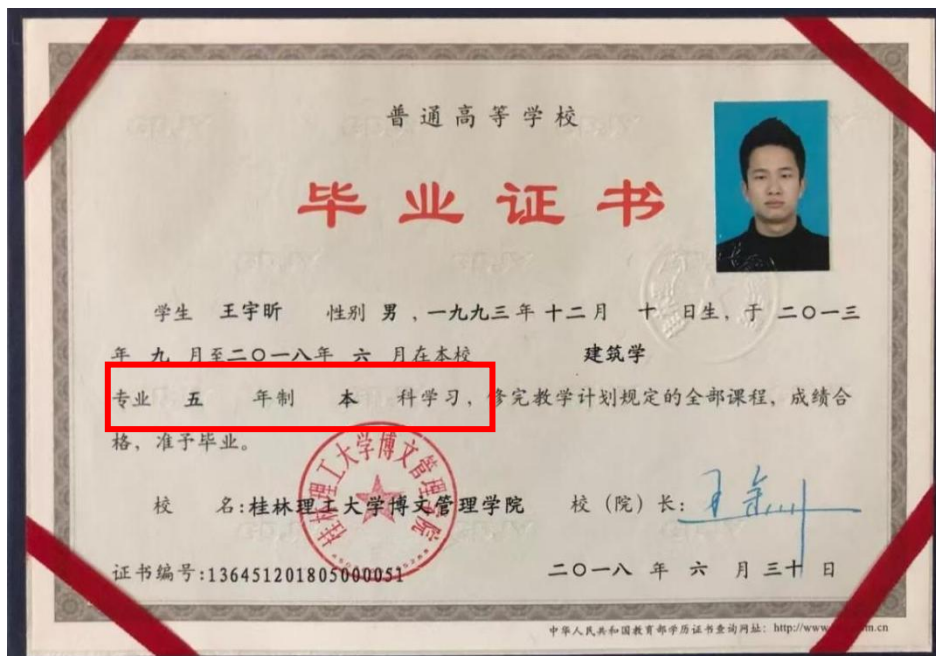 普通高等学校
毕业证书
学生 王宇昕 性别 男 ，一九九三年 十二月 十 日生，于 二〇一三
年 九 月至二〇一八年 六 月在本校 建筑学
专业 五 年制 本 科学习，修完教学计划规定的全部课程，成绩合
格，准予毕业。
桂林理工大学博文管理学院
校 名:桂林理工大学博文管理学院 校（院）长:
证书编号:136451201805000051 二〇一八 年 六 月 三十 日
中华人民共和国教育部学历证书查询网址: http://www. .cn